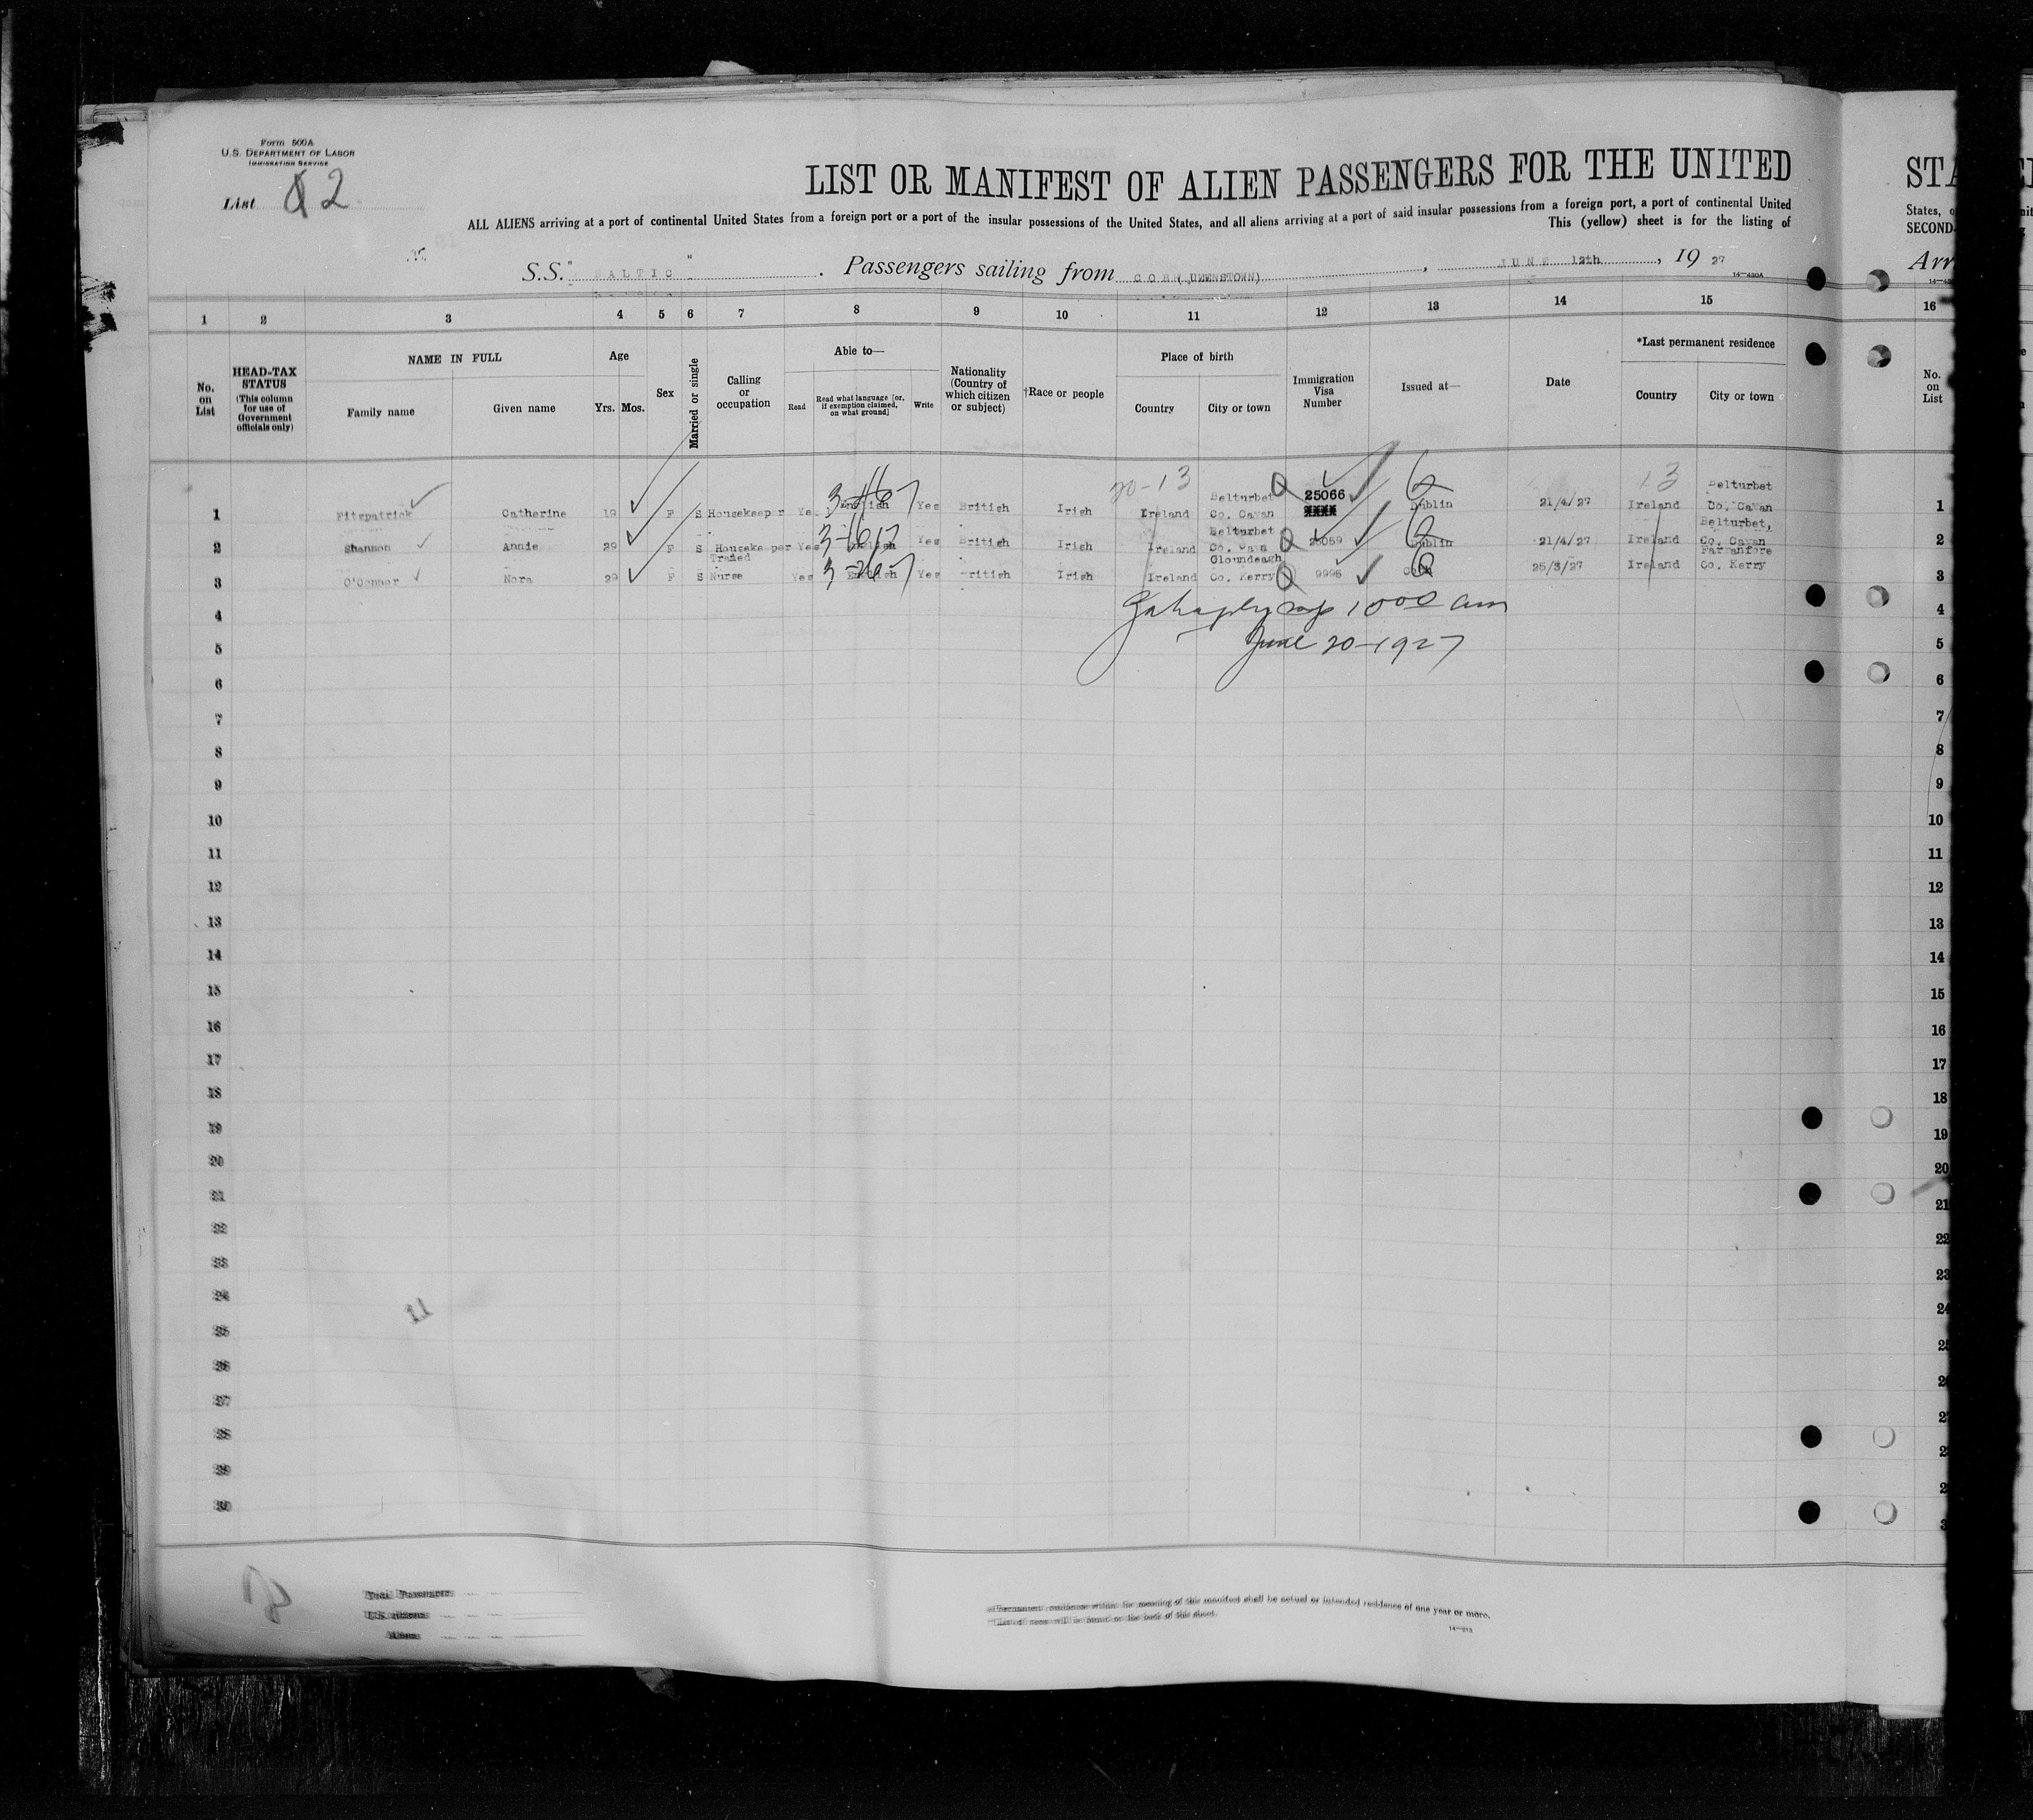 Form 500A
U.S. DEPARTMENT OF LABOR
IMMIGRATION SERVICE
List 2
LIST OR MANIFEST OF ALIEN PASSENGERS FOR THE UNITED
ALL ALIENS arriving at a port of continental United States from a foreign port or a port of the insular possessions of the United States, and all aliens arriving at a port of said insular possessions from a foreign port, a port of continental United
This (yellow) sheet is for the listing of
S.S. "BALTIC" . Passengers sailing from COBH (QUEENSTOWN) , JUNE 12th , 19 27
14—430A
1 2 3 4 5 6 7 8 9 10 11 12 13 14 15
No. on List
HEAD-TAX STATUS (This column for use of Government officials only)
NAME IN FULL
Family name Given name
Age
Yrs. Mos.
Sex
Married or single
Calling or occupation
Able to—
Read Read what language [or, if exemption claimed, on what ground] Write
Nationality (Country of which citizen or subject)
†Race or people
Place of birth
Country City or town
Immigration Visa Number
Issued at—
Date
*Last permanent residence
Country City or town
20-13 13
1 Fitzpatrick Catherine 19 F S Housekeeper Yes English Yes British Ireland Belturbet Co. Cavan 25066 XXXX Dublin 21/4/27 Ireland Belturbet Co. Cavan
2 Shannon Annie 29 F S Housekeeper Yes English Yes British Irish Ireland Belturbet Co. Cavn 25059 Dublin 21/4/27 Ireland Belturbet, Co. Cavan
3 O'Connor Nora 29 F S Traned Nurse Yes English Yes British Irish Ireland Cloundeagh Co. Kerry 9995 Cobh 25/3/27 Ireland Farranfore Co. Kerry
4
1000 am
5
June 20-1927
6
7
8
9
10
11
12
13
14
15
16
17
18
19
20
21
22
23
24
25
26
27
28
29
30
11
Total Passengers
U.S. citizens
Aliens
*Permanent residence within the meaning of this manifest shall be actual or intended residence of one year or more.
†List of races will be found on the back of this sheet.
STA
States, o
SECOND-
Arr
16
No. on List
1
2
3
4
5
6
7
8
9
10
11
12
13
14
15
16
17
18
19
20
21
22
23
24